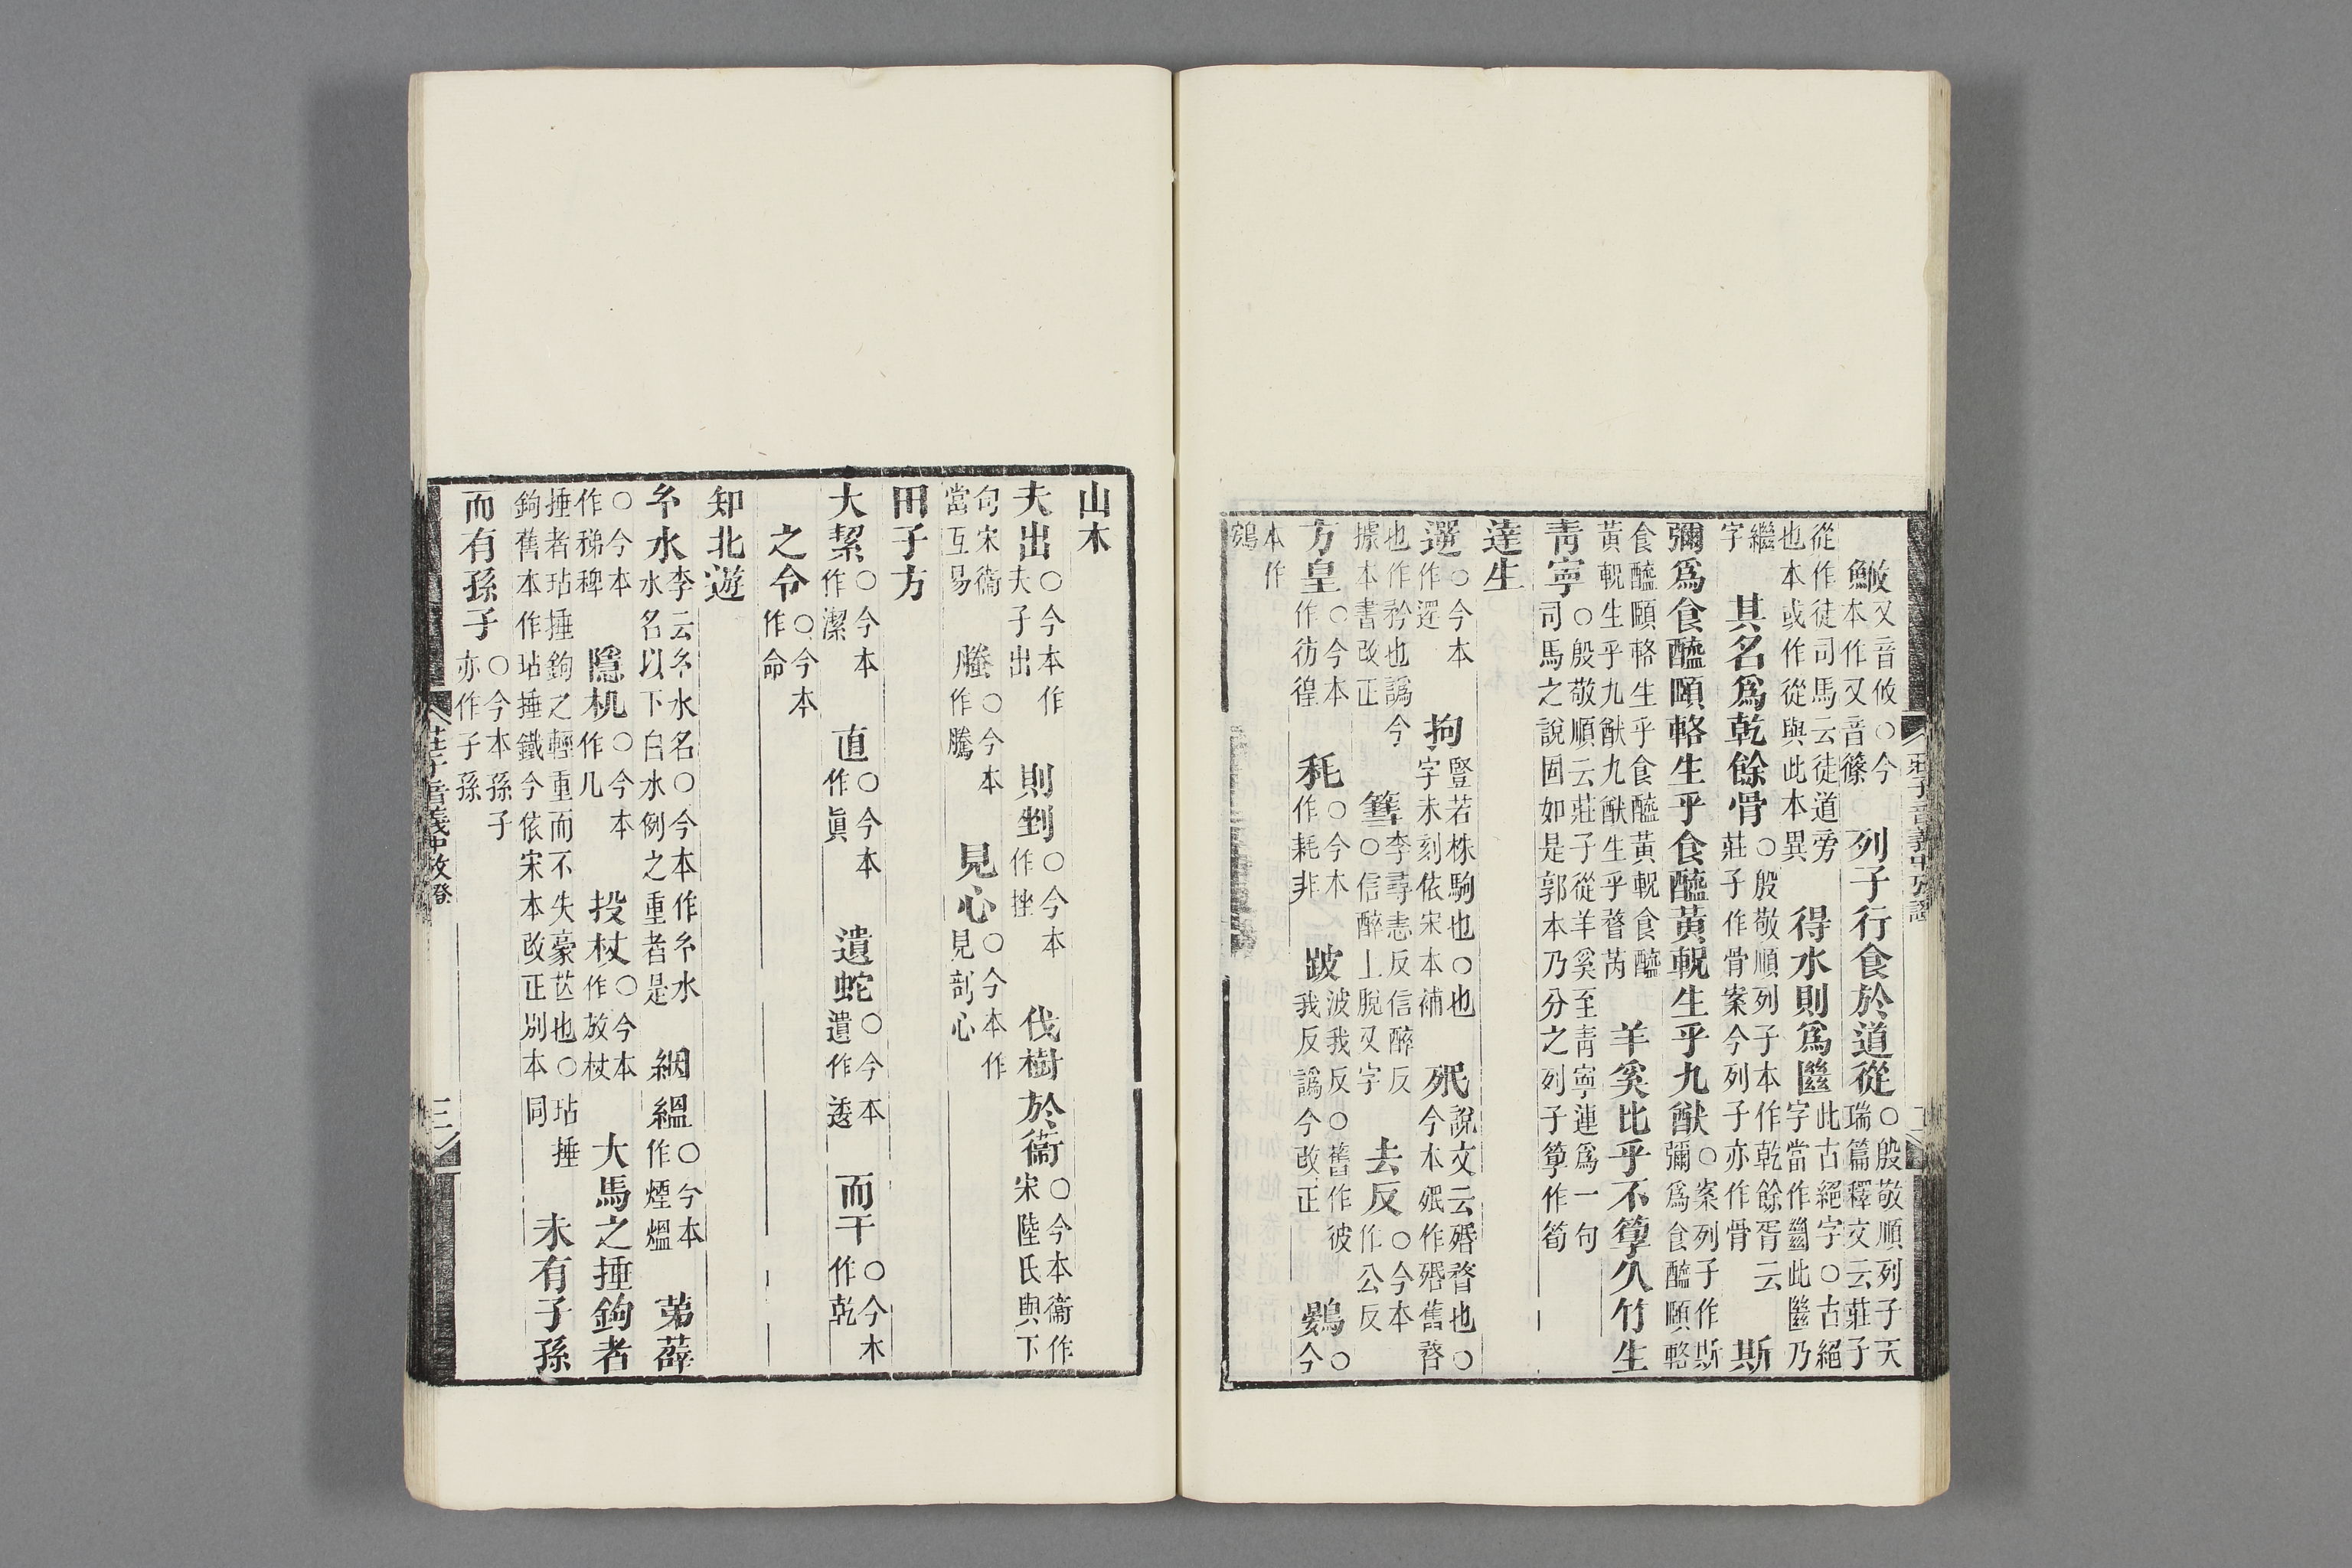 䱔又音攸○今本作又音篠 列子行食於道從○殷敬順列子天瑞篇釋文云莊子
從作徒司馬云徒道旁也本或作從與此本異 得水則爲㡭此古絕字○古絕字當作𢇍此㡭乃
繼字 其名爲乾餘骨○殷敬順列子本作乾餘胥云莊子作骨案今列子亦作骨 斯
彌爲食醯頤輅生乎食醯黃軦生乎九猷○案列子作斯彌爲食醯頤輅
食醯頤輅生乎食醯黃軦食醯黃軦生乎九猷九猷生乎瞀芮 羊奚比乎不箰久竹生
靑寧○殷敬順云莊子從羊奚至靑寧連爲一句司馬之說固如是郭本乃分之列子箰作筍
達生
選○今本作遻 拘豎若株駒也○也字未刻依宋本補 㱪說文云殙瞀也○今本㱪作殙舊瞀
也作矜也譌今據本書改正 篲李尋恚反信醉反○信醉上脫又字 去反○今本作公反
方皇○今本作彷徨 秏○今本作耗非 跛波我反○舊作彼我反譌今改正 鷃○今
本作鴳
山木
夫出○今本作夫子出 則剉○今本作挫 伐樹於衞○今本衞作宋陸氏與下
句宋衞當互易 塍○今本作騰 見心○今本作見剖心
田子方
大絜○今本作潔 直○今本作眞 遺蛇○今本遺作逶 而干○今本作乾
之令○今本作命
知北遊
糸水李云糸水水名○今本作糸水水名以下白水例之重者是 絪縕○今本作煙熅 苐薜
○今本作稊稗 隱机○今本作几 投杖○今本作放杖 大馬之捶鉤者
捶者玷捶鉤之輕重而不失豪芒也○玷捶鉤舊本作玷捶鐵今依宋本改正別本同 未有子孫
而有孫子○今本孫子亦作子孫
莊子音義中攷證 三